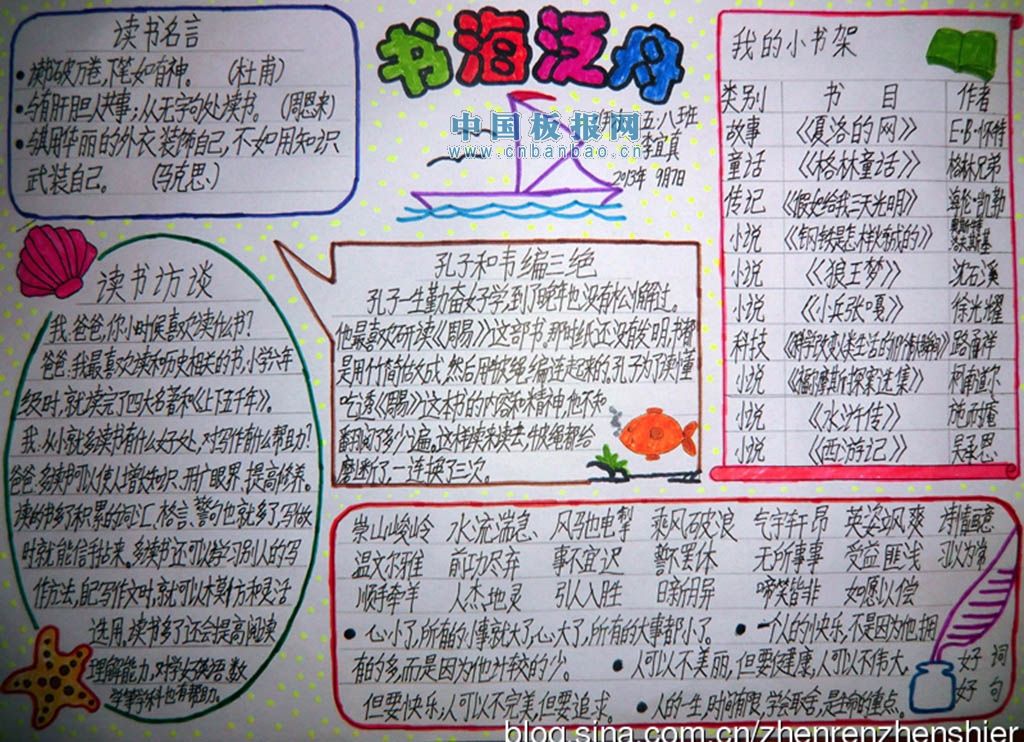 读书名言
读书破万卷,下笔如有神。 (杜甫)
与有肝胆人共事;从无字句处读书。 (周恩来)
与其用华丽的外衣装饰自己,不如用知识
武装自己。 (马克思)
书海泛舟
五.八班
李宜真
2013年 9月7日
中国板报网
www.cnbanbao.cn
我的小书架
类别 书 目 作者
故事 《夏洛的网》 E·B·怀特
童话 《格林童话》 格林兄弟
传记 《假如给我三天光明》 海伦·凯勒
小说 《钢铁是怎样炼成的》 奥斯特洛夫斯基
小说 《狼王梦》 沈石溪
小说 《小兵张嘎》 徐光耀
科技 路甬祥
小说 《福尔摩斯探案选集》 柯南道尔
小说 《水浒传》 施耐庵
小说 《西游记》 吴承恩
读书访谈
我:爸爸,你小时候喜欢读什么书?
爸爸:我最喜欢读和历史相关的书,小学六年
级时,就读完了四大名著和《上下五千年》。
我:从小就多读书有什么好处,对写作有什么帮助?
爸爸:多读书可以使人增长知识、开广眼界、提高修养。
读的书多了积累的词汇、格言、警句也就多了,写做
时就能信手拈来。多读书还可以学习别人的写
作方法,自己写作文时,就可以木莫仿和灵活
选用,读书多了还会提高阅读
理解能力,对学好英语、数
学等学科也有帮助。
孔子和韦编三绝
孔子一生勤奋好学,到了晚年也没有松懈过。
他最喜欢研读《周易》这部书。那时纸还没发明,书都
是用竹简做成,然后用牛皮绳编连起来的。孔子为了读懂
吃透《周易》这本书的内容和精神,他不知
翻阅了多少遍。这样读来读去,牛皮绳都给
磨断了,一连换了三次。
崇山峻岭 水流湍急 风马也电掣 乘风破浪 气宇轩昂 英姿飒爽 诗情画意
温文尔雅 前功尽弃 事不宜迟 誓不罢休 无所事事 受益匪浅 习以为常
顺手牵羊 人杰地灵 引人入胜 日新月异 啼笑皆非 如愿以偿
心小了,所有的小事就大了;心大了,所有的大事都小了。 一个人的快乐,不是因为他拥
有的多,而是因为他计较的少。 人可以不美丽,但要健康;人可以不伟大,
但要快乐;人可以不完美,但要追求。 人的一生,时间有限,学会取舍,是生命的重点。
好词
好句
blog.sina.com.cn/zhenrenzhenshier